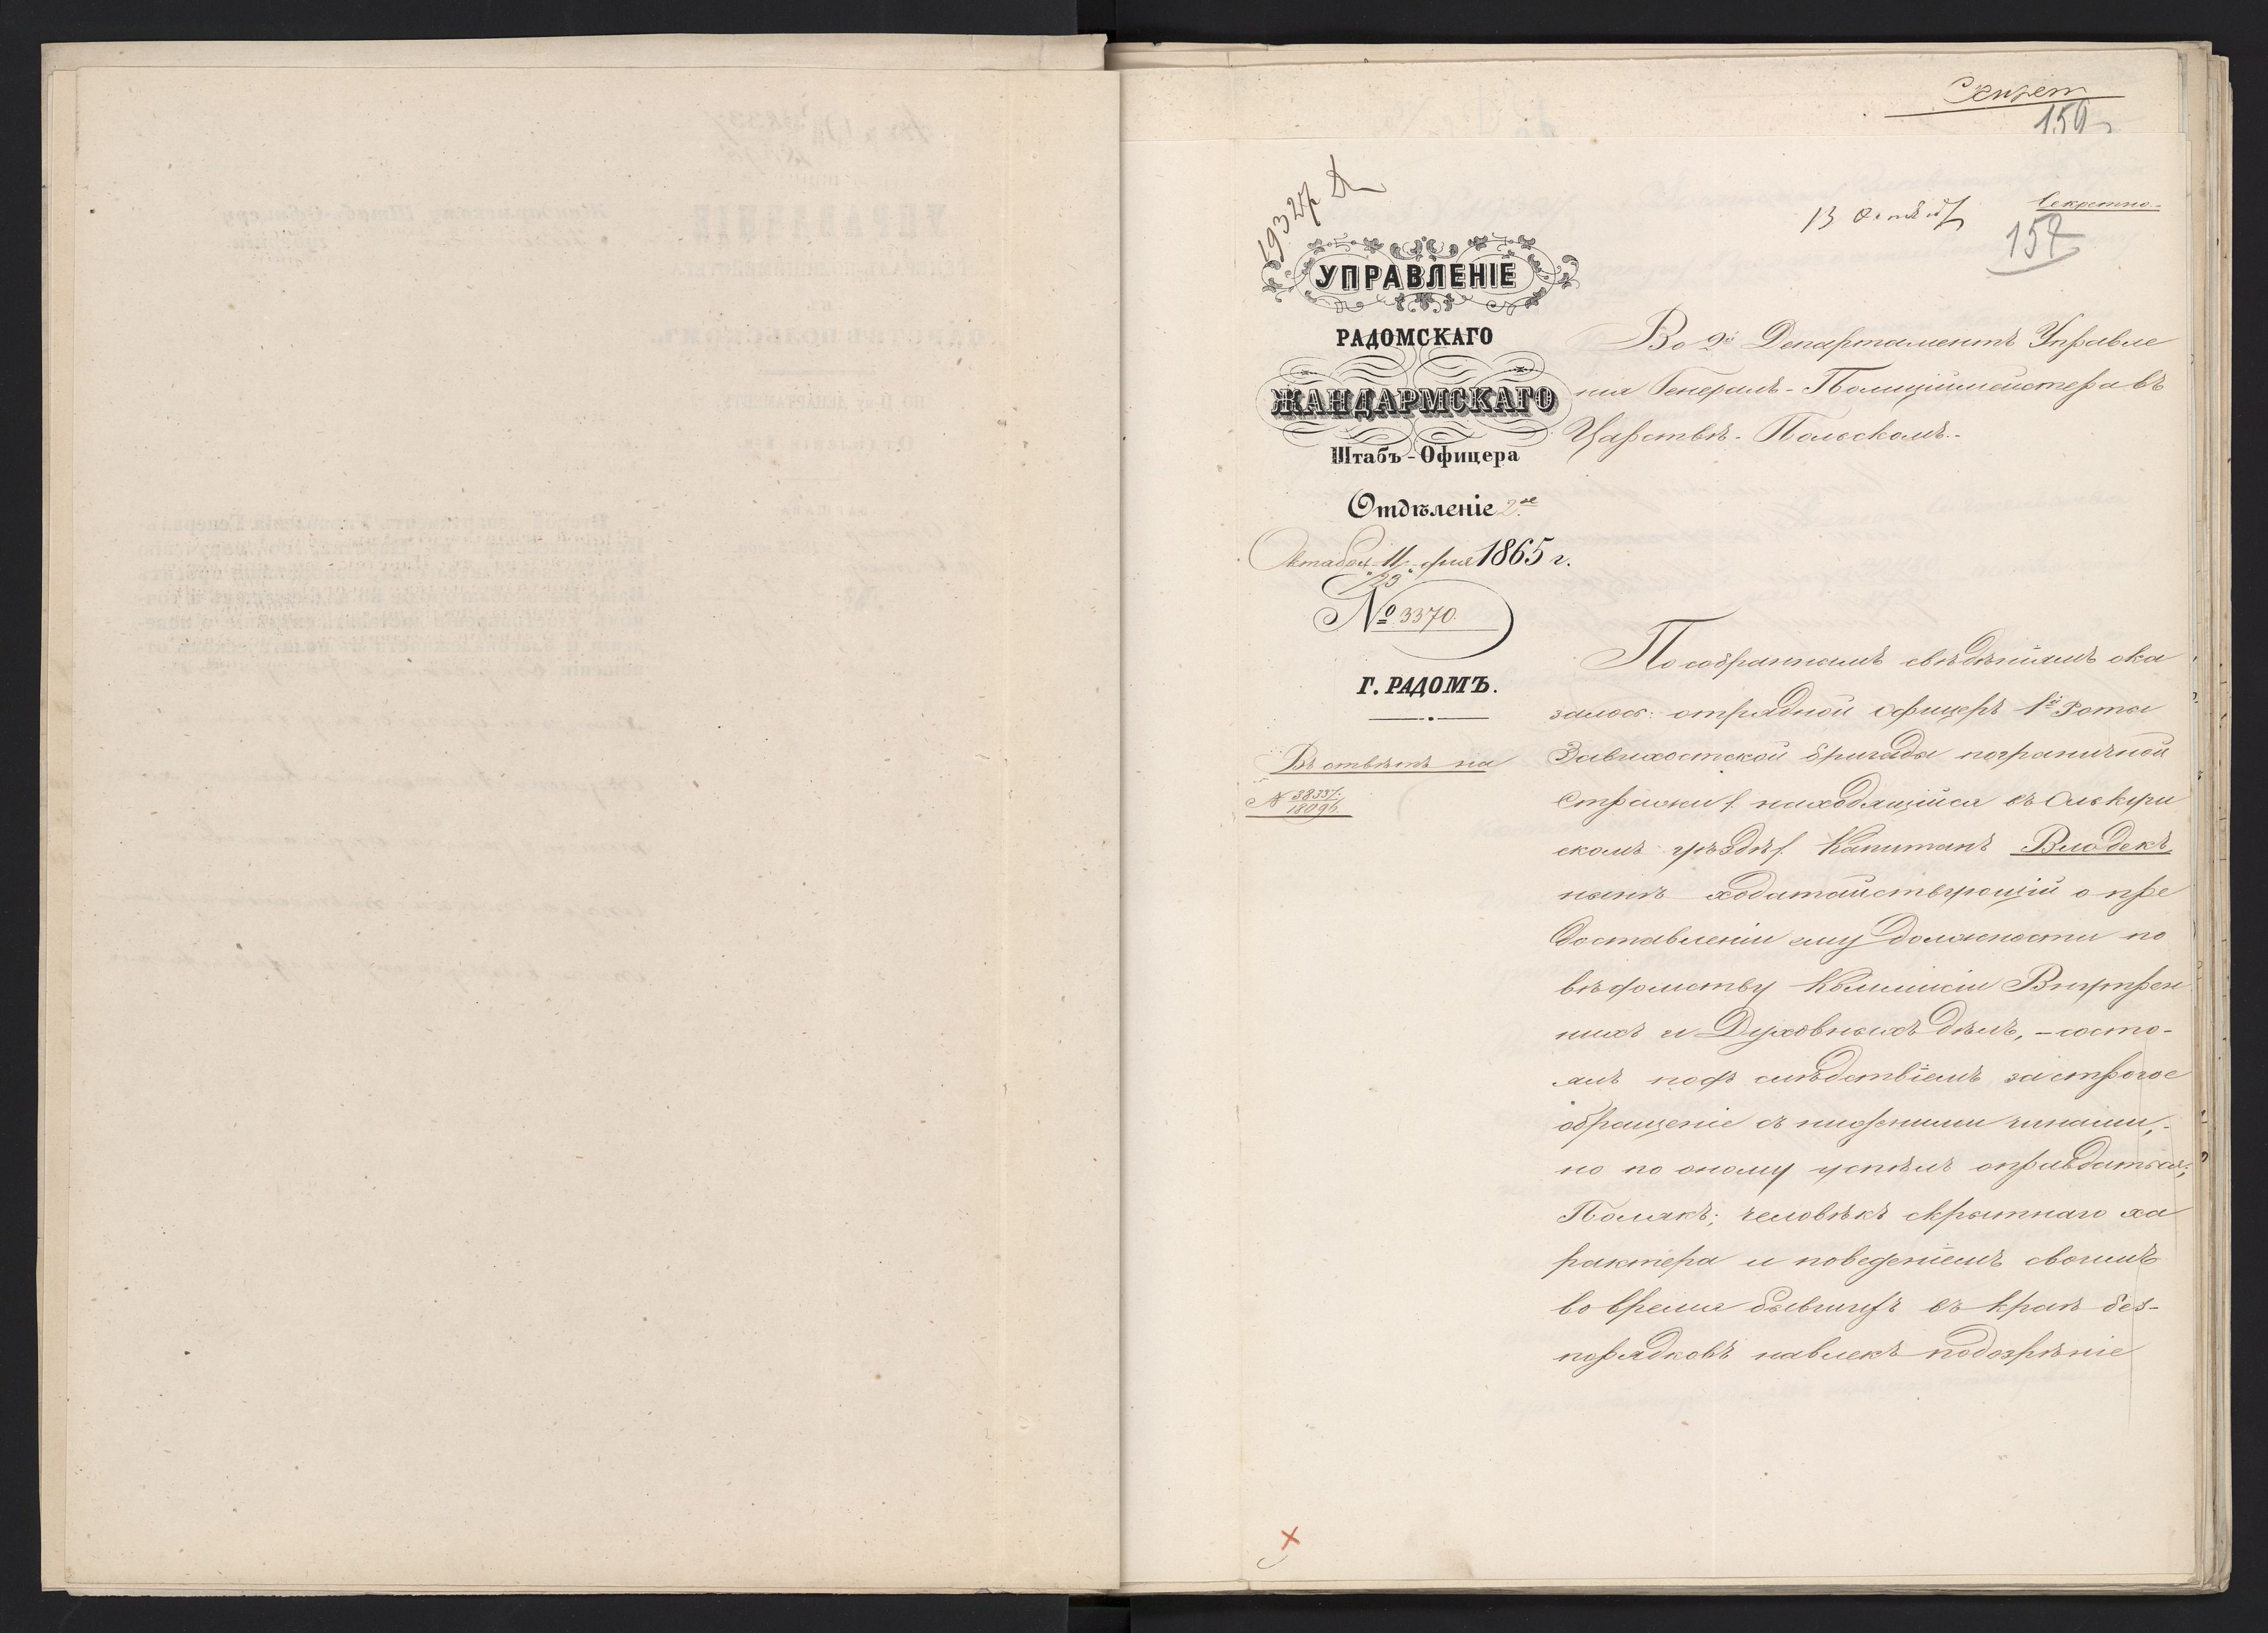 Секрет
150
19324
13 Октяб
Секретно.
157
УПРАВЛЕНІЕ
РАДОМСКАГО
ЖАНДАРМСКАГО
Штабъ-Офицера
Отдѣленіе 2ое
Октября 11/23 дня 1865 г.
№ 3370.
Г. РАДОМЪ.
Въ отвѣтъ на
№ 38337/18096
Во 2й Департаментъ Управле
нія Генералъ-Полиціймейстера въ
Царствѣ-Польскомъ.
По собраннымъ свѣдѣніямъ ока
залось: отрядной офицеръ 1й Роты
Завихостской бригады пограничной
Стражи /находящійся въ Олькуш
скомъ уѣздѣ/ Капитанъ Влодекъ,
нынѣ ходатайствующій о пре
доставленіи ему должности по
вѣдомству Коммисіи Внутрен
нихъ и Духовныхъ дѣлъ, – состо-
ялъ подъ слѣдствіемъ за строгое
обращеніе съ нижними чинами,-
но по оному успѣлъ оправдаться;
Полякъ; человѣкъ скрытнаго ха
рактера и поведеніемъ своимъ
во время бывшихъ въ краѣ без-
порядковъ навлекъ подозрѣніе